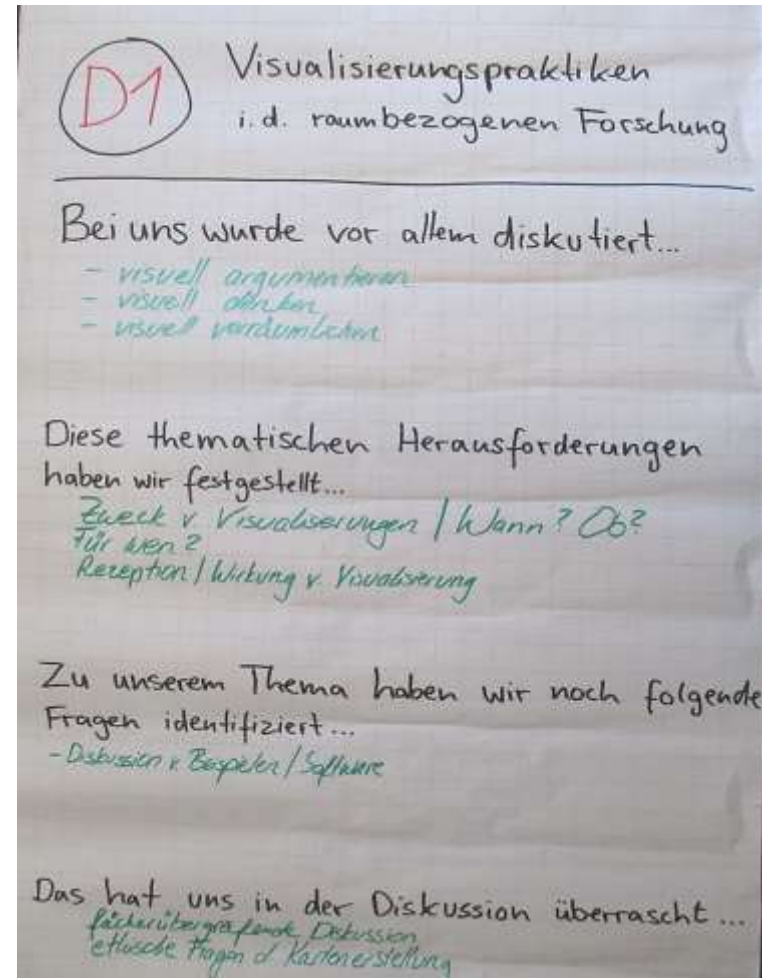 D1
Visualisierungspraktiken
i. d. raumbezogenen Forschung
Bei uns wurde vor allem diskutiert...
- visuell argumentieren
- visuell denken
- visuell verräumlichen
Diese thematischen Herausforderungen
haben wir festgestellt...
Zweck v. Visualisierungen / Wann? Ob?
Für wen?
Rezeption / Wirkung v. Visualisierung
Zu unserem Thema haben wir noch folgende
Fragen identifiziert...
- Diskussion v. Beispielen / Software
Das hat uns in der Diskussion überrascht...
fächerübergreifende Diskussion
ethische Fragen d. Kartenerstellung